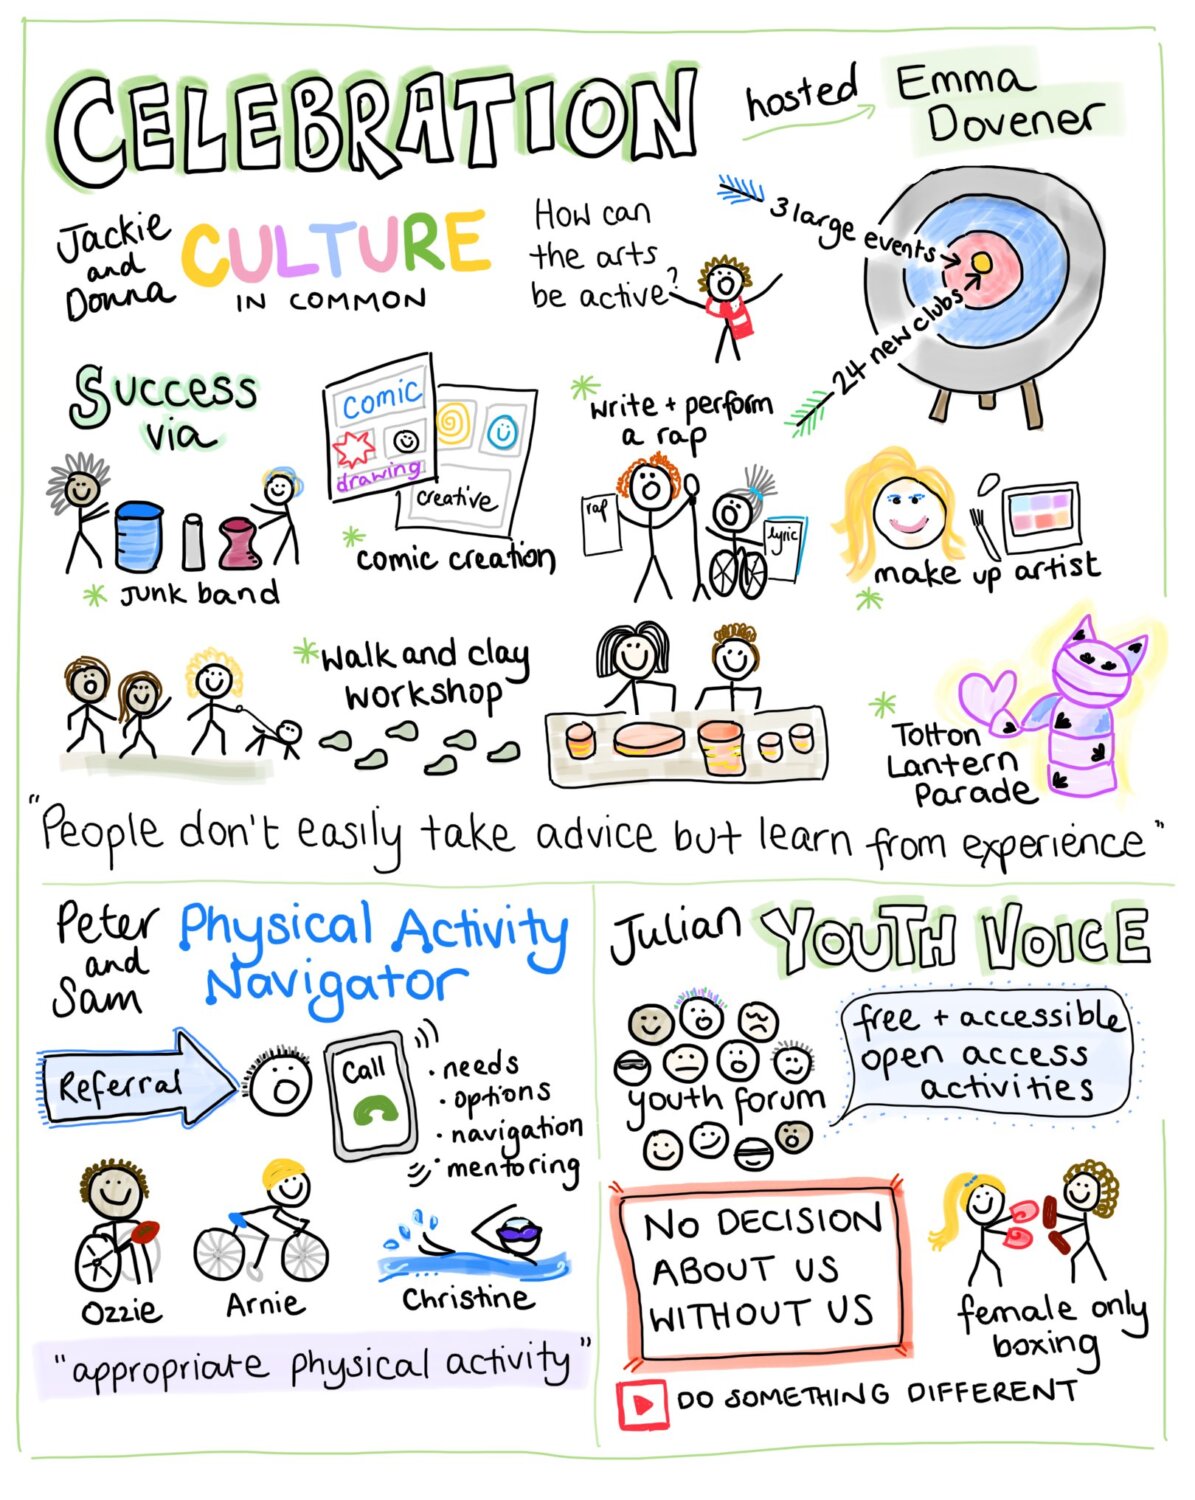 CELEBRATION
hosted
Emma
Dovener
Jackie
and
Donna
CULTURE
IN COMMON
How can
the arts
be active?
3 large events
24 new clubs
Success
via
comic
drawing
creative
* comic creation
* Junk band
* write + perform
a rap
rap
lyric
make up artist
*
* Walk and clay
workshop
* Totton
Lantern
Parade
"People don't easily take advice but learn from experience"
Peter
and
Sam
Physical Activity
Navigator
Referral
Call
· needs
· options
· navigation
· mentoring
Ozzie
Arnie
Christine
"appropriate physical activity"
Julian
YOUTH VOICE
youth forum
free + accessible
open access
activities
NO DECISION
ABOUT US
WITHOUT US
female only
boxing
DO SOMETHING DIFFERENT